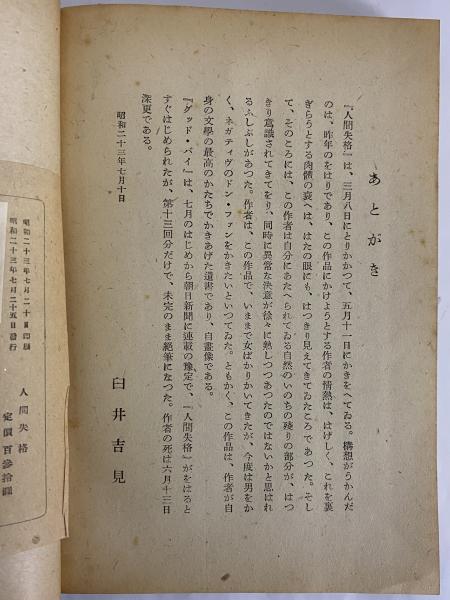 あとがき
『人間失格』は、三月八日にとりかかつて、五月十一日にかきをへてゐる。構想がうかんだ
のは、昨年のをはりであり、この作品にかけようとする作者の情熱は、はげしく、これを裏
ぎらうとする肉體の衰へは、はたの眼にも、はつきり見えてきてゐたころであつた。そし
て、そのころには、この作者は自分にあたへられてゐる自然のいのちの殘りの部分が、はつ
きり意識されてきてをり、同時に異常な決意が徐々に熟しつつあつたのではないかと思はれ
るふしぶしがあつた。作者は、この作品で、いままで女ばかりかいてきたが、今度は男をか
く、ネガティヴのドン・ファンをかきたいといつてゐた。ともかく、この作品は、作者が自
身の文學の最高のかたちでかきあげた遺書であり、自畫像である。
『グッド・バイ』は、七月のはじめから朝日新聞に連載の豫定で、『人間失格』がをはると
すぐはじめられたが、第十三回分だけで、未完のまま絶筆になつた。作者の死は六月十三日
深更である。
昭和二十三年七月十日
臼井吉見
昭和二十三年七月二十日印刷
昭和二十三年七月二十五日發行
人間失格
定價百參拾圓